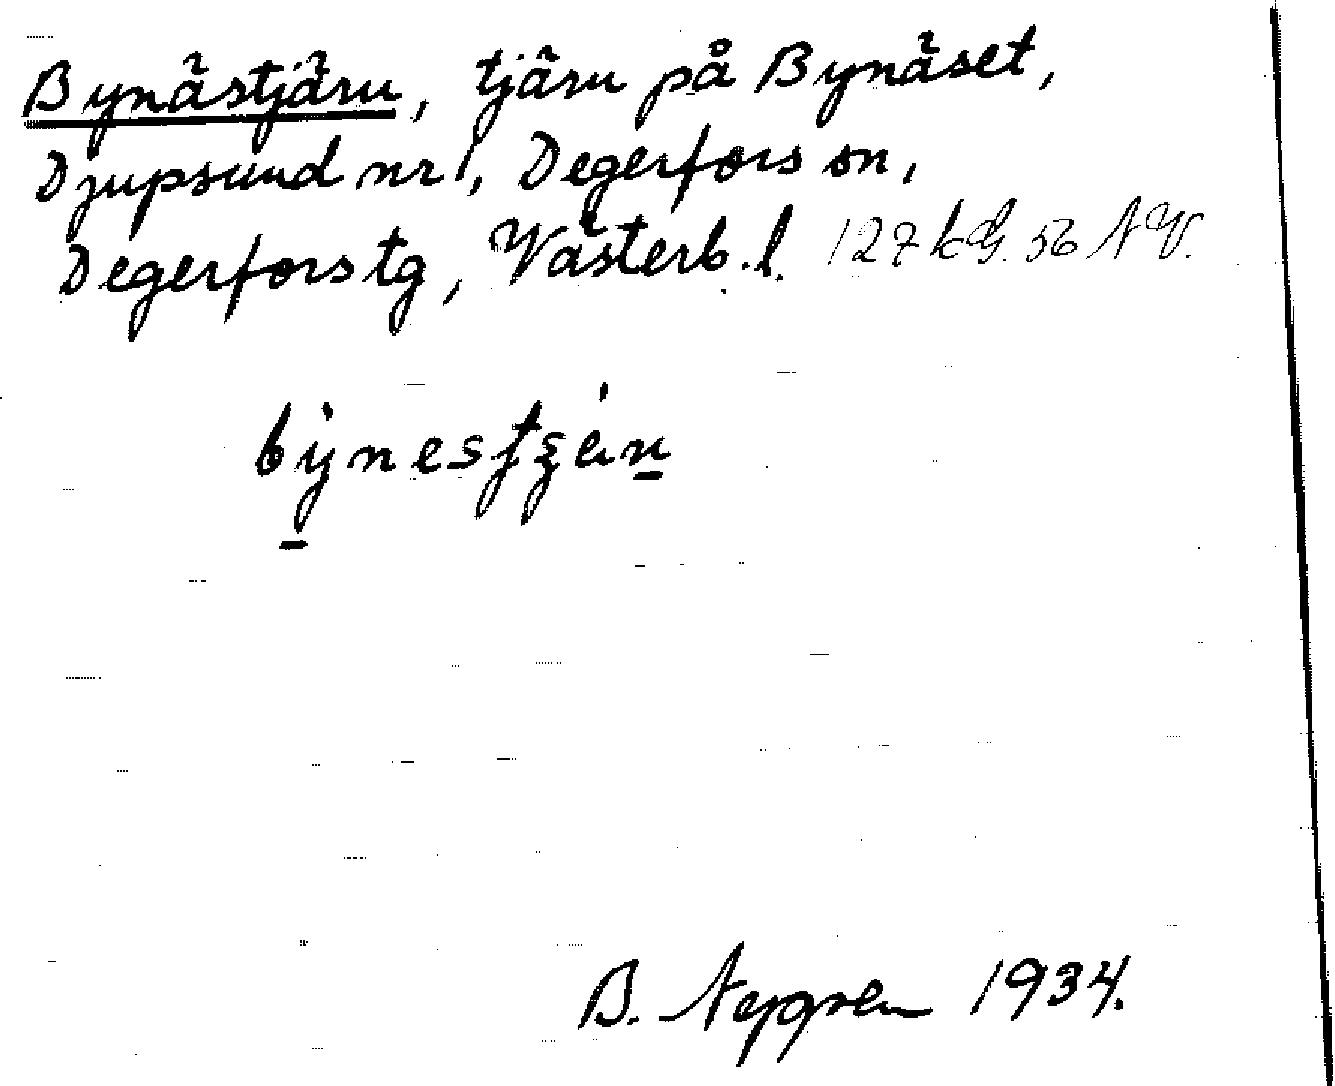 Bynästjärn, tjärn på Bynäset,
Djupsund nr 1, Degerfors sn,
Degerfors tg, Västerb. l. 127 kG. 56 NV.
B. 1934.